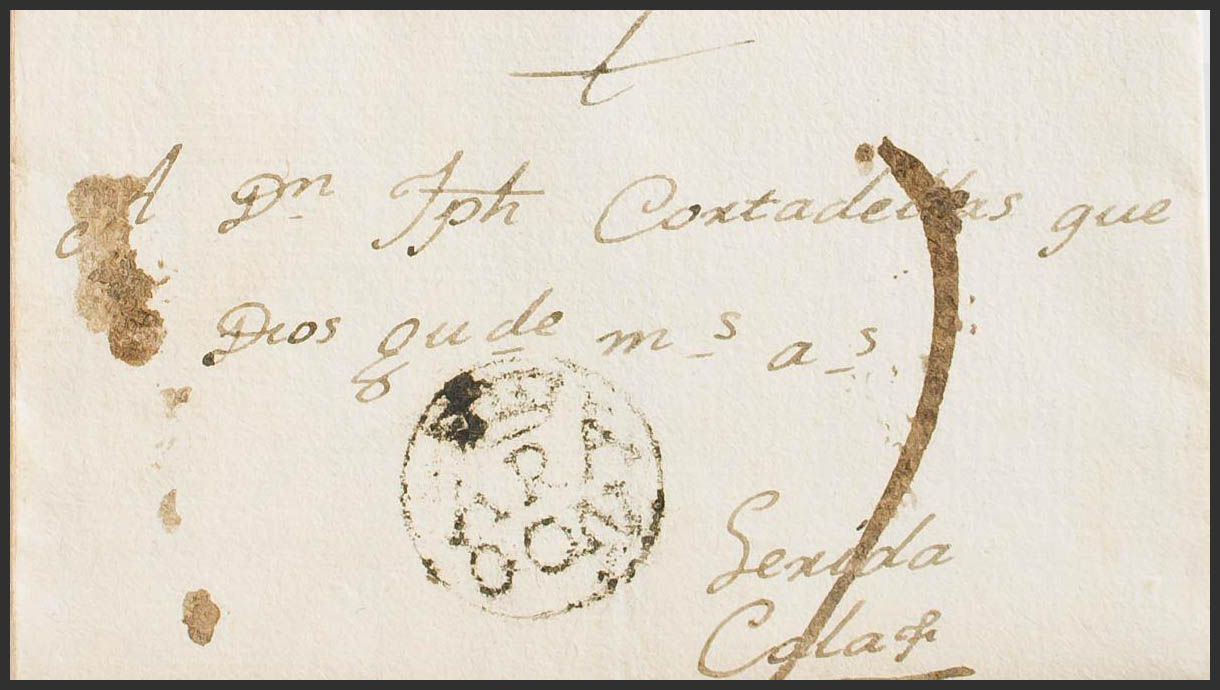 A Dn Jph Cortadellas que
Dios gude ms as
Lerida
Cala